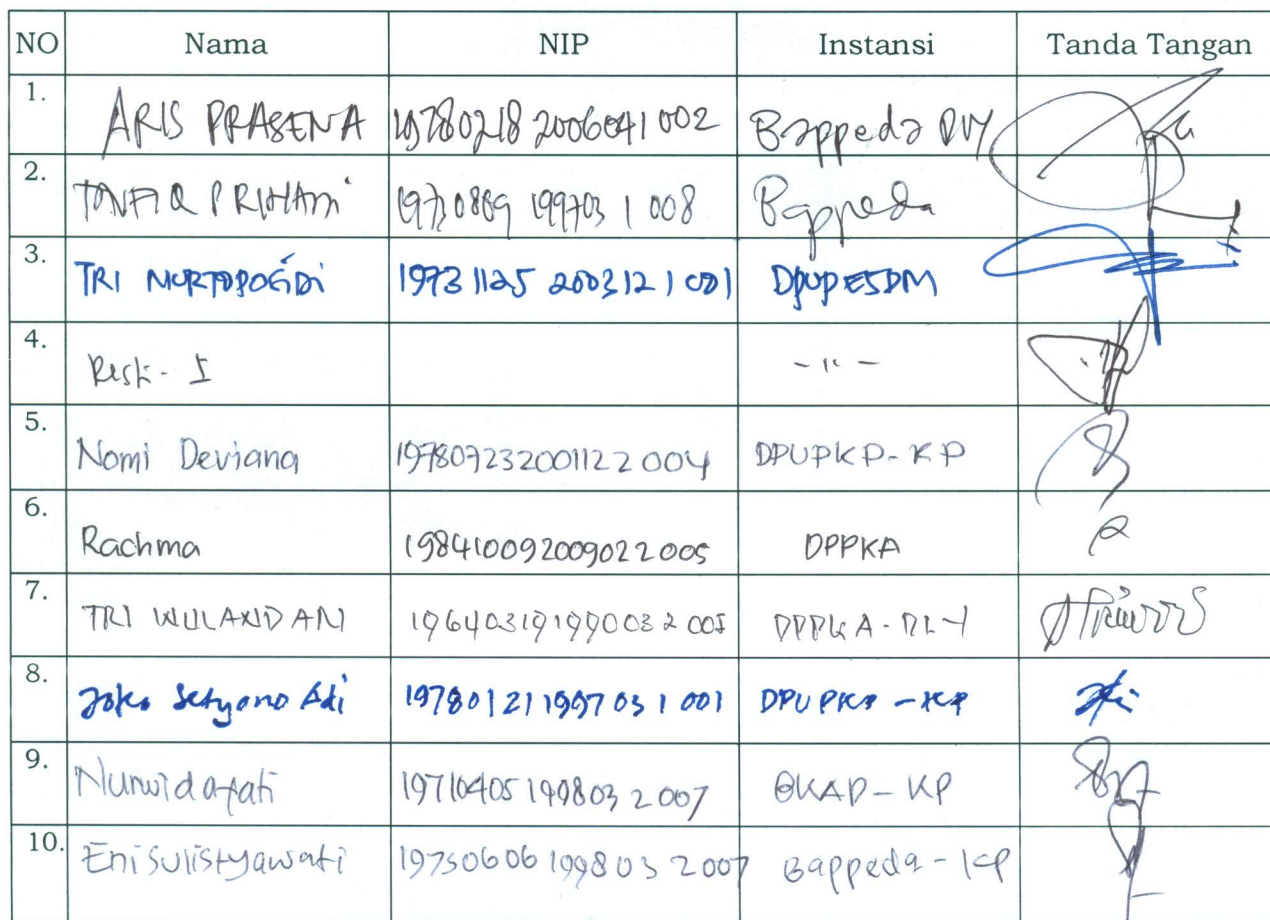 NO Nama NIP Instansi Tanda Tangan
1. ARIS PRASENA 19780218 2006041 002 Bappeda DIY
2. 199703 1 008 Bappeda
3. TRI 19731125 200312 1 001 DPUPESDM
4. - " -
5. Nomi Deviana 197807232001122004 DPUPKP-KP
6. Rachma 198410092009022005 DPPKA
7. TRI WULANDARI 196403191990032005
8. Joko Setyono Adi 19780121 199703 1 001 DPUPKP - KP
9. Nurwidayati 19710405 199803 2 007 BKAD - KP
10. Eni Sulistyawati 19750606 199803 2 007 Bappeda - KP